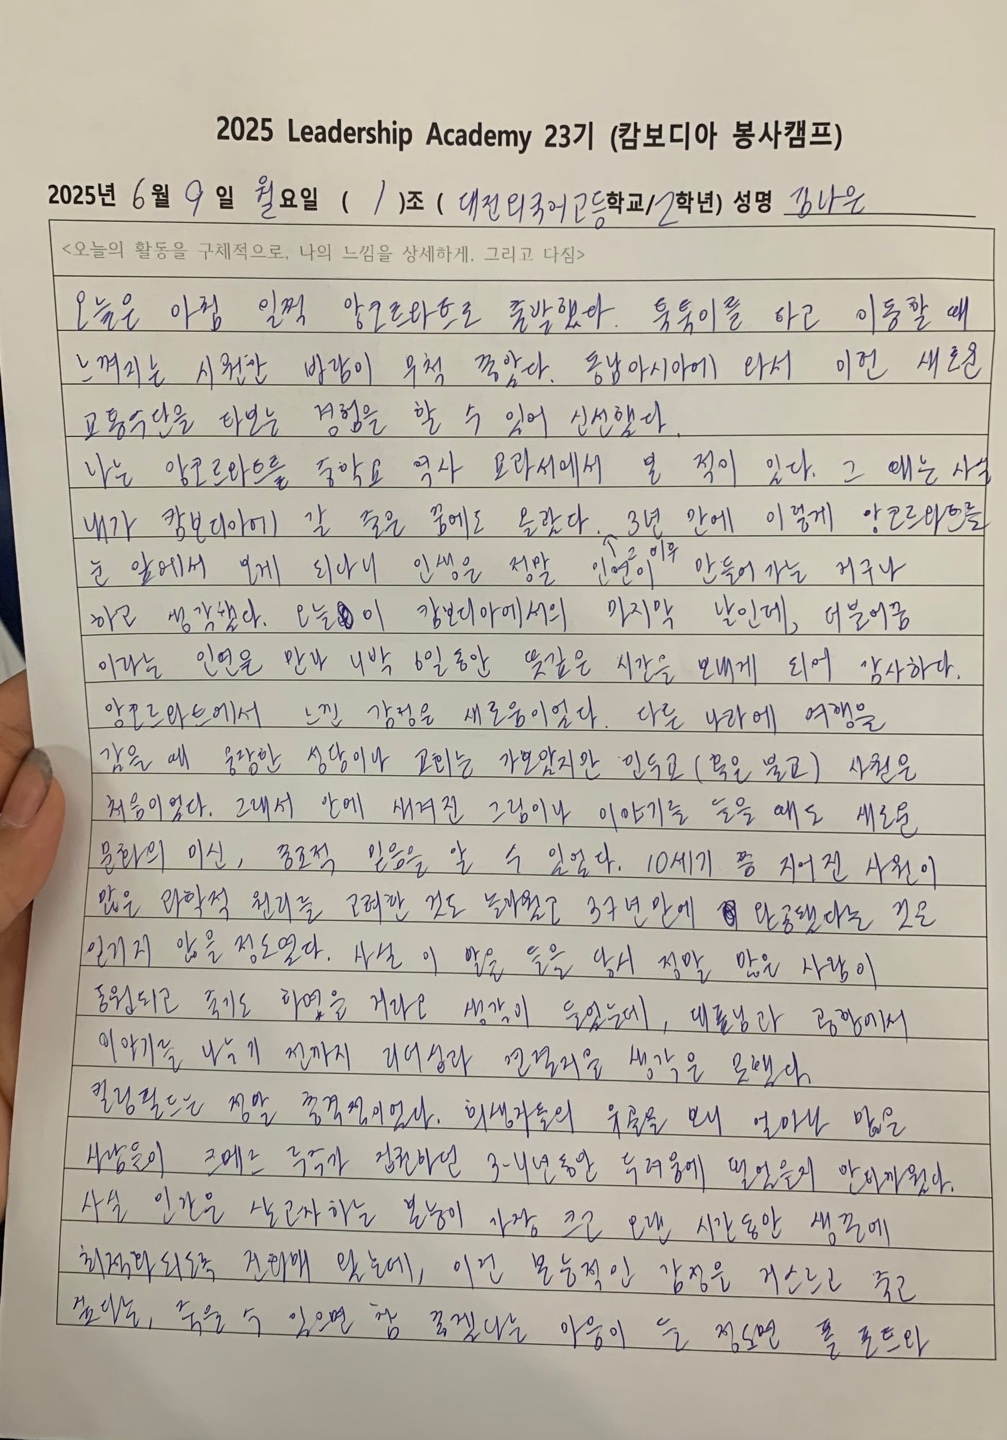 2025 Leadership Academy 23기 (캄보디아 봉사캠프)
2025년 6월 9일 월요일 ( 1 )조 ( 대전외국어고등학교/2학년) 성명 김나은
<오늘의 활동을 구체적으로, 나의 느낌을 상세하게, 그리고 다짐>
오늘은 아침 일찍 앙코르와트로 출발했다. 툭툭이를 타고 이동할 때
느껴지는 시원한 바람이 무척 좋았다. 동남아시아에 와서 이런 새로운
교통수단을 타보는 경험을 할 수 있어 신선했다.
나는 앙코르와트를 중학교 역사 교과서에서 본 적이 있다. 그 때는 사실
내가 캄보디아에 갈 줄은 꿈에도 몰랐다. 3년 만에 이렇게 앙코르와트를
눈 앞에서 보게 되다니 인생은 정말 인연이 만들어 가는 거구나
하고 생각했다. 오늘이 캄보디아에서의 마지막 날인데, 더불어꿈
이라는 인연을 만나 4박 6일동안 뜻깊은 시간을 보내게 되어 감사하다.
앙코르와트에서 느낀 감정은 새로움이었다. 다른 나라에 여행을
갔을 때 웅장한 성당이나 교회는 가보았지만 힌두교(혹은 불교) 사원은
처음이었다. 그래서 안에 새겨진 그림이나 이야기를 들을 때도 새로운
문화의 미신, 종교적 믿음을 알 수 있었다. 10세기 쯤 지어진 사원이
많은 과학적 원리를 고려한 것도 놀라웠고 37년만에 완공됐다는 것은
믿기지 않을 정도였다. 사실 이 말을 들을 당시 정말 많은 사람이
동원되고 죽기도 하였을 거라고 생각이 들었는데, 대표님과 공항에서
이야기를 나누기 전까지 리더십과 연결지을 생각은 못했다.
킬링필드는 정말 충격적이었다. 희생자들의 유골을 보니 얼마나 많은
사람들이 크메르 루주가 집권하던 3-4년동안 두려움에 떨었을지 안타까웠다.
사실 인간은 살고자하는 본능이 가장 크고 오랜 시간동안 생존에
최적화되도록 진화해 왔는데, 이런 본능적인 감정을 거스르고 죽고
싶다는, 죽을 수 있으면 참 좋겠다는 마음이 들 정도면 폴 포트와